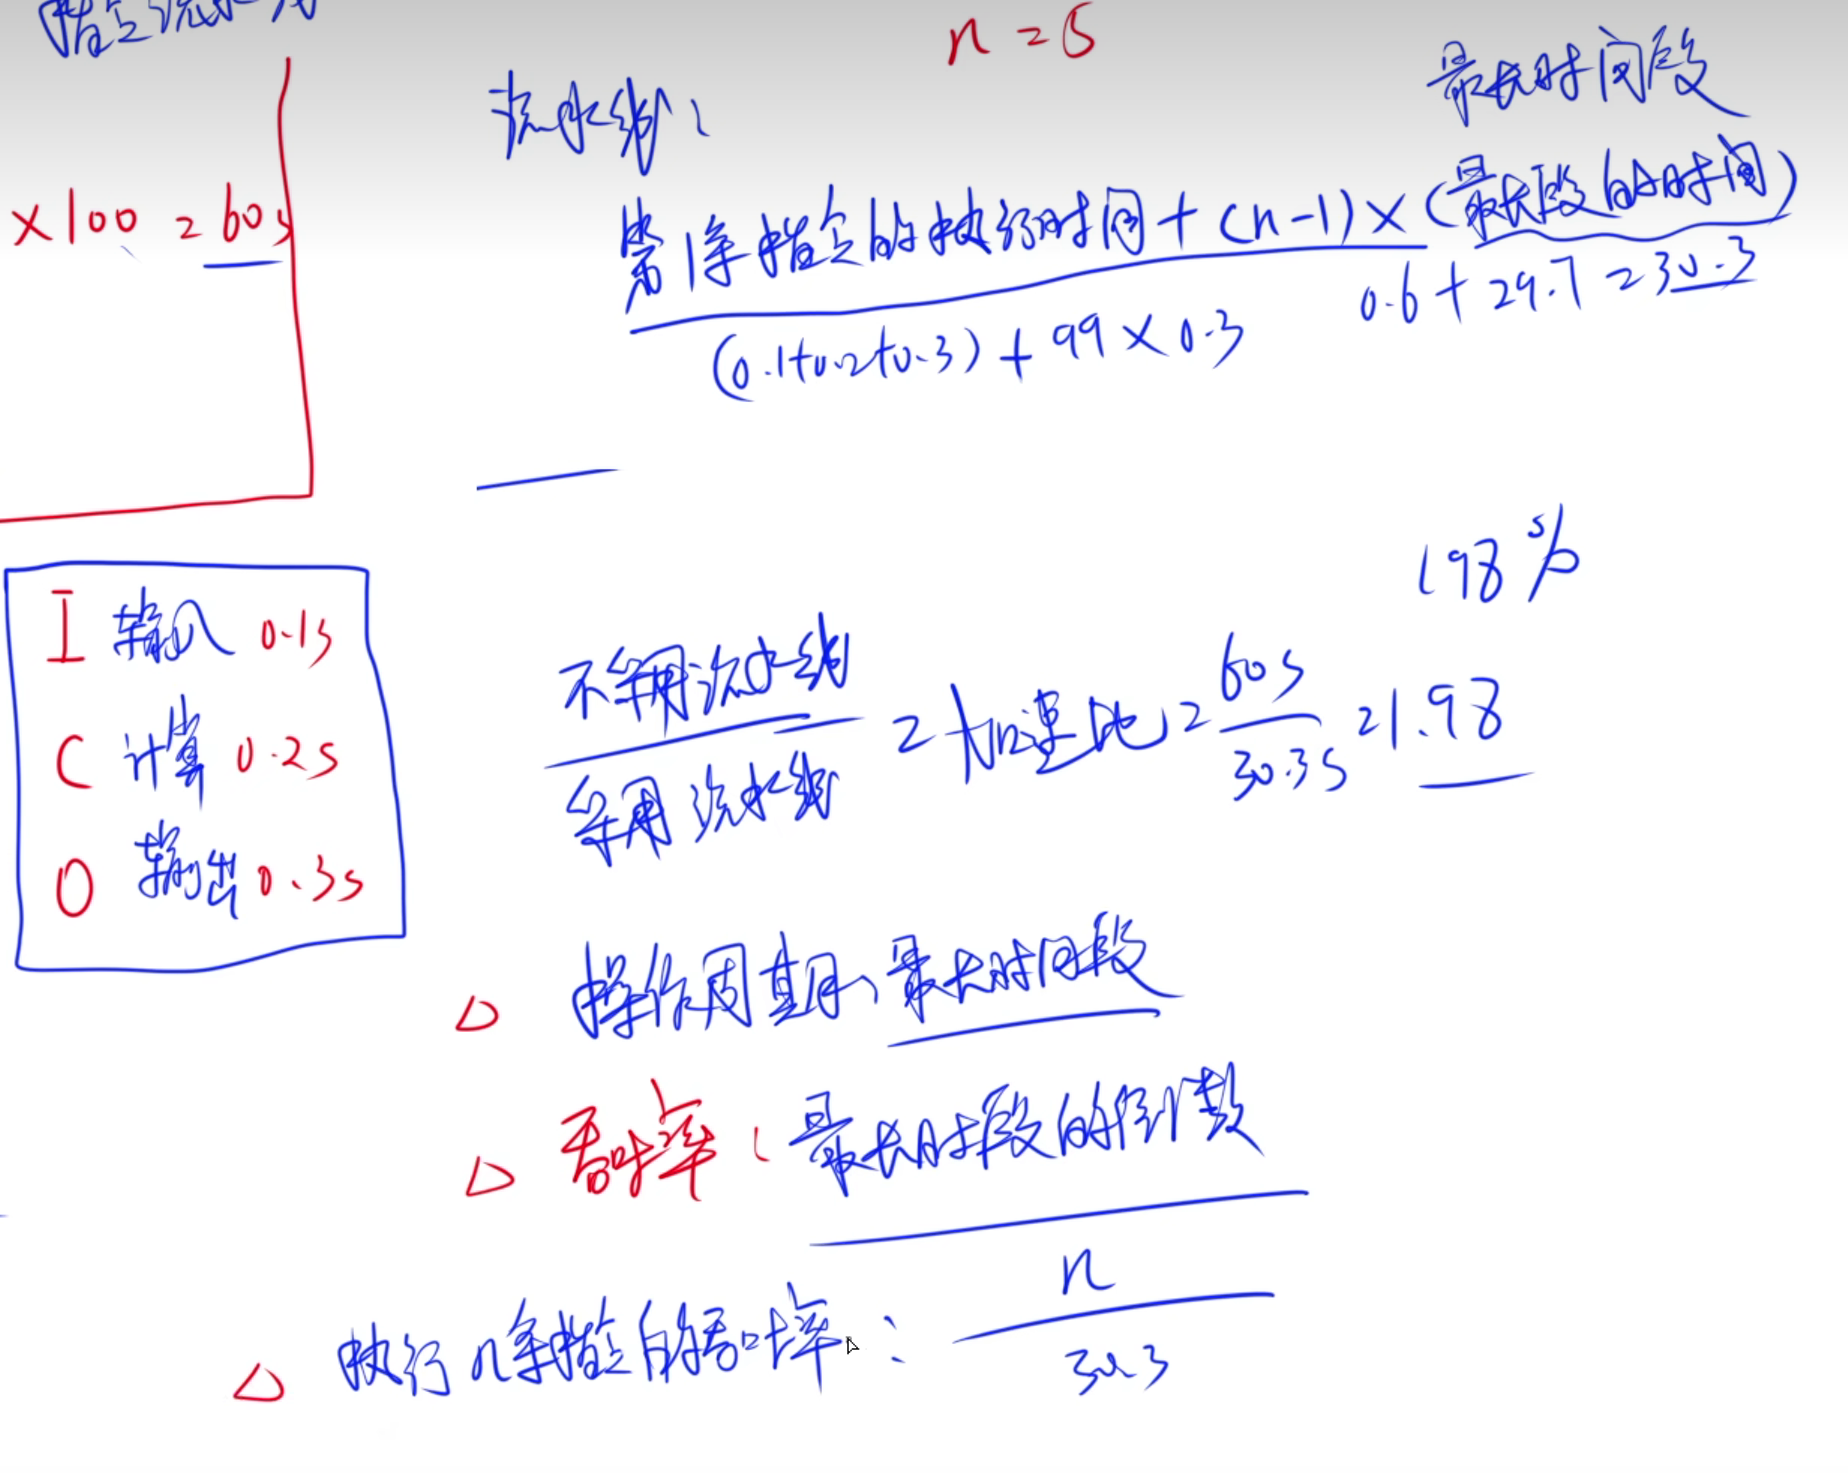 指令流水线
n=5
流水线:
最长时间段
×100=60s
第1条指令的执行时间+(n-1)×(最长段的时间)
(0.1+0.2+0.3)+99×0.3
0.6+29.7=30.3
198%
I 输入 0.1s
C 计算 0.2s
O 输出 0.3s
不采用流水线
采用流水线
=加速比=60s/30.3s=1.98
△ 操作周期:最长时间段
△ 吞吐率:最长时段的倒数
△ 执行n条指令的吞吐率:n/30.3